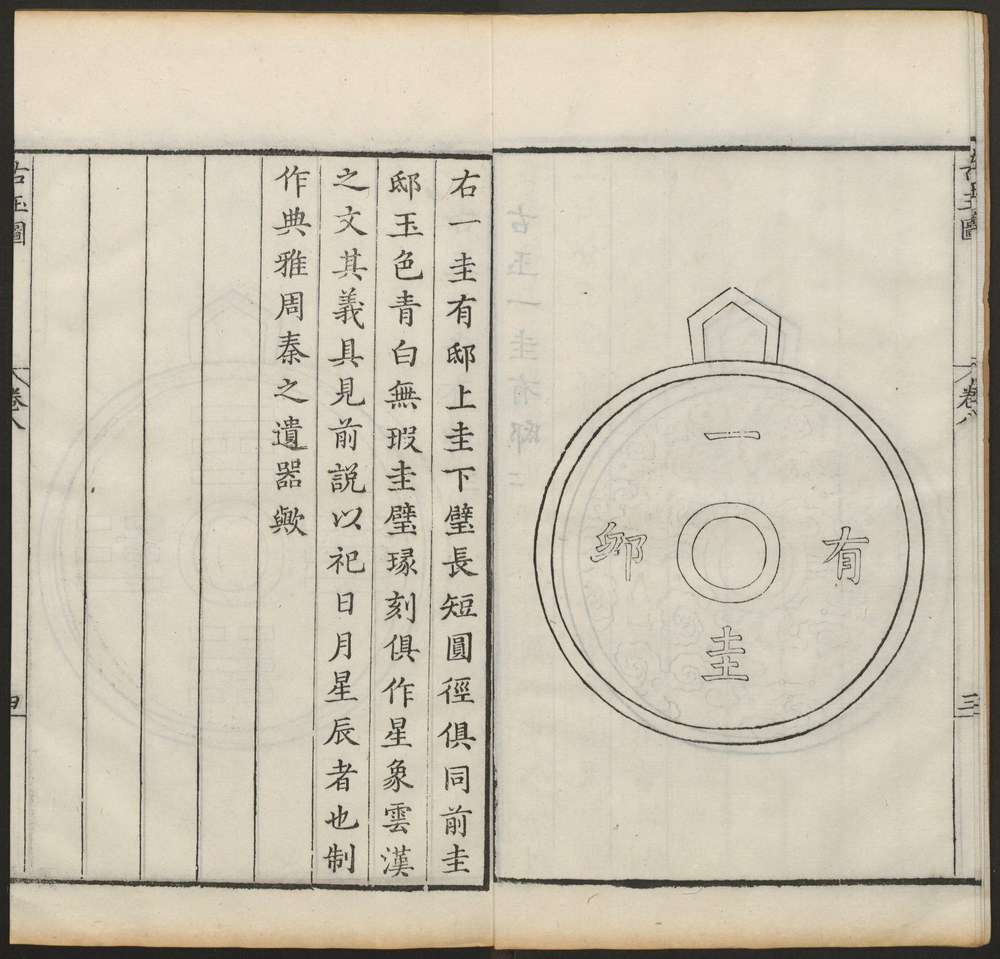 古玉圖
卷八
三
一
圭
有
邸
右一圭有邸上圭下璧長短圓徑俱同前圭
邸玉色青白無瑕圭璧瑑刻俱作星象雲漢
之文其義具見前說以祀日月星辰者也制
作典雅周秦之遺器歟
古玉圖
卷八
四